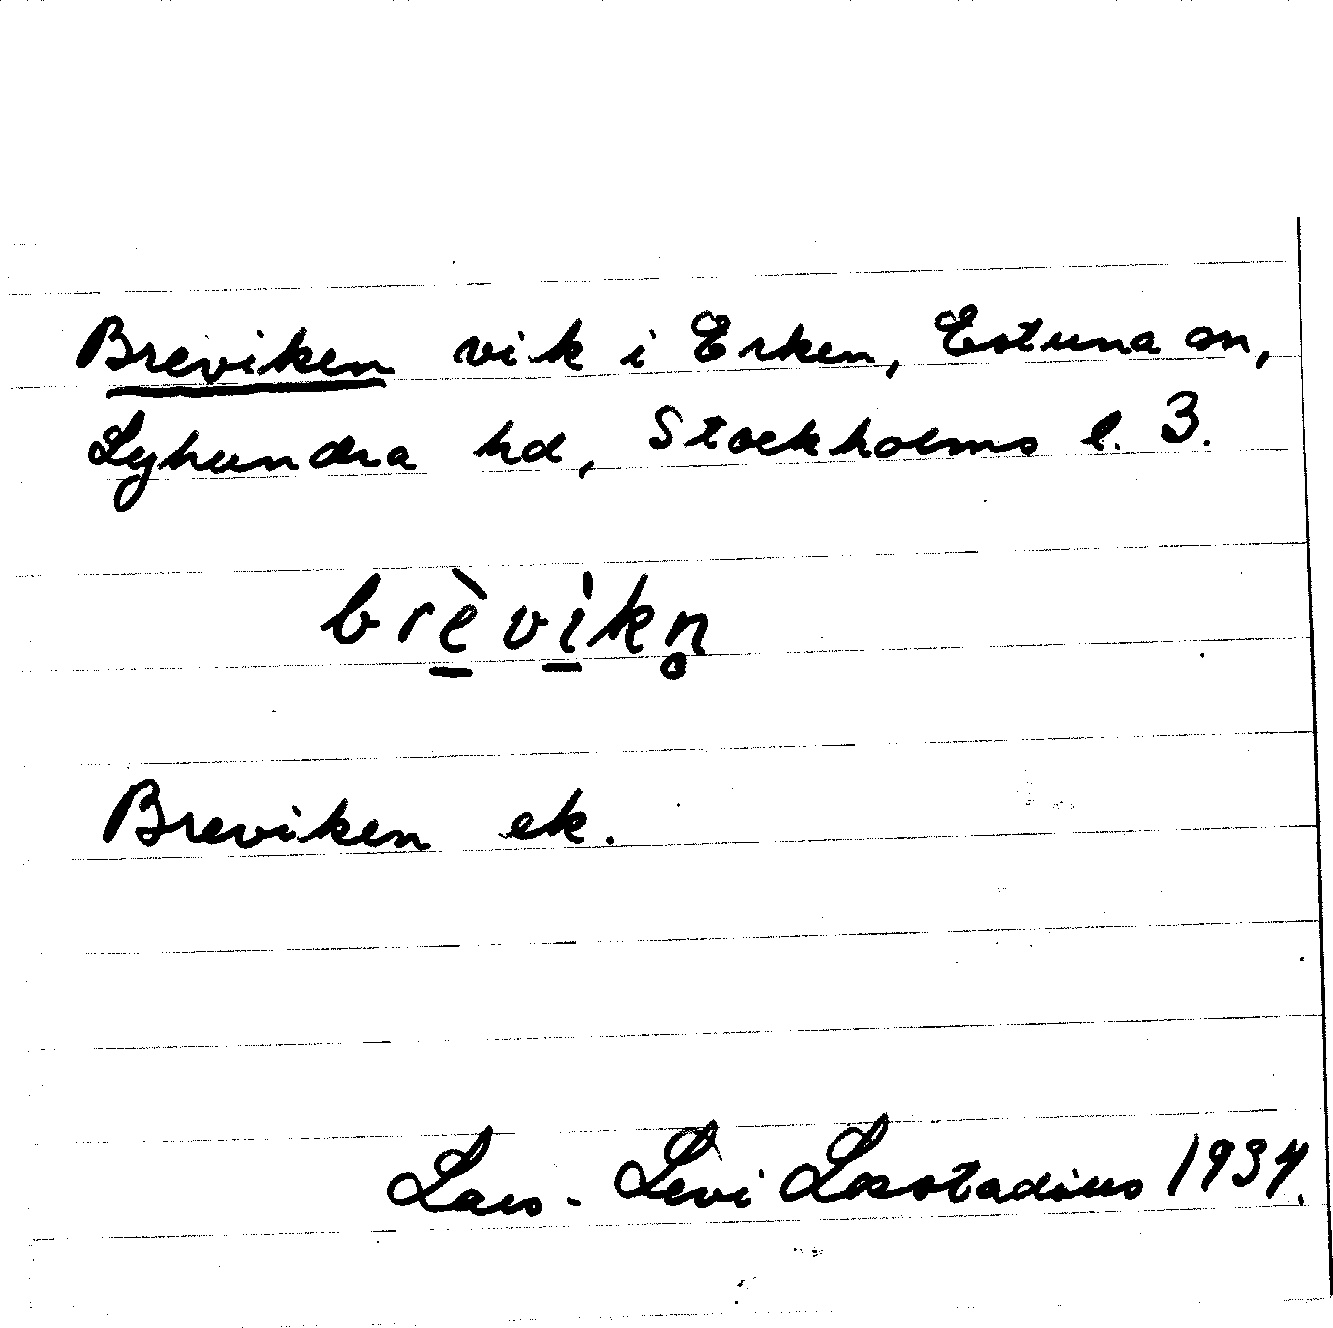 Breviken vik i Erken, Estuna sn,
Lyhundra hd, Stockholms l. 3.
brè̱vi̱kn̥
Breviken ek.
Lars-Levi Læstadius 1934.